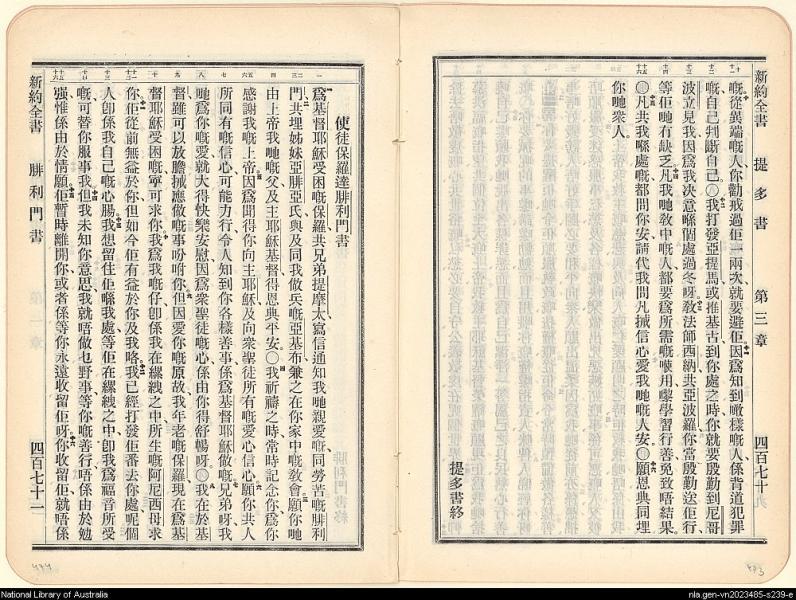 新約全書 提多書 第三章 四百七十
嘅從異端嘅人你勸戒過佢一兩次就要避佢因爲知到噉樣嘅人係背道犯罪
嘅自己判斷自己〇我打發亞提馬或推基古到你處之時你就要殷勤到尼哥
波立見我因爲我决意喺個處過冬呀教法師西納共亞波羅你當殷勤送佢行
等佢哋有缺乏凡我哋敎中嘅人都要爲所需嘅嚟用嚟學習行善免致唔結果
〇凡共我喺處嘅都問你安請代我問凡搣信心愛我哋嘅人安〇願恩典同埋
你哋衆人
提多書終
使徒保羅達腓利門書
爲基督耶穌受困嘅保羅共兄弟提摩太寫信通知我哋親愛嘅同勞苦嘅腓利
門共埋姊妹亞腓亞氏與及同我做兵嘅亞基布兼之在你家中嘅敎會願你哋
由上帝我哋嘅父及主耶穌基督得恩典平安〇我祈禱之時常時記念你爲你
感謝我嘅上帝因爲聞得你向主耶穌及向衆聖徒所有嘅愛心信心願你共人
所同有嘅信心可能力行令人知到你各樣善事係爲基督耶穌做嘅兄弟呀我
哋爲你嘅愛就大得快樂安慰因爲衆聖徒嘅心係由你得舒暢呀〇我在於基
督雖可以放膽搣應做嘅事吩咐你但因愛你嘅原故我年老嘅保羅現在爲基
督耶穌受困嘅寧可求你我爲我嘅仔卽係我在縲絏之中所生嘅阿尼西母求
你佢從前無益於你但如今佢有益於你及我咯我已經打發佢番去你處呢個
人卽係我自己嘅心腸我想留住佢喺我處等佢在縲絏之中卽我爲福音所受
嘅可替你服事我但我未知你意思我就唔做乜野事等你嘅善行唔係由於勉
强惟係由於情願佢暫時離開你或者係等你永遠收留佢呀你收留佢就唔係
新約全書 腓利門書 四百七十一
National Library of Australia
nla.gen-vn2023485-s239-e